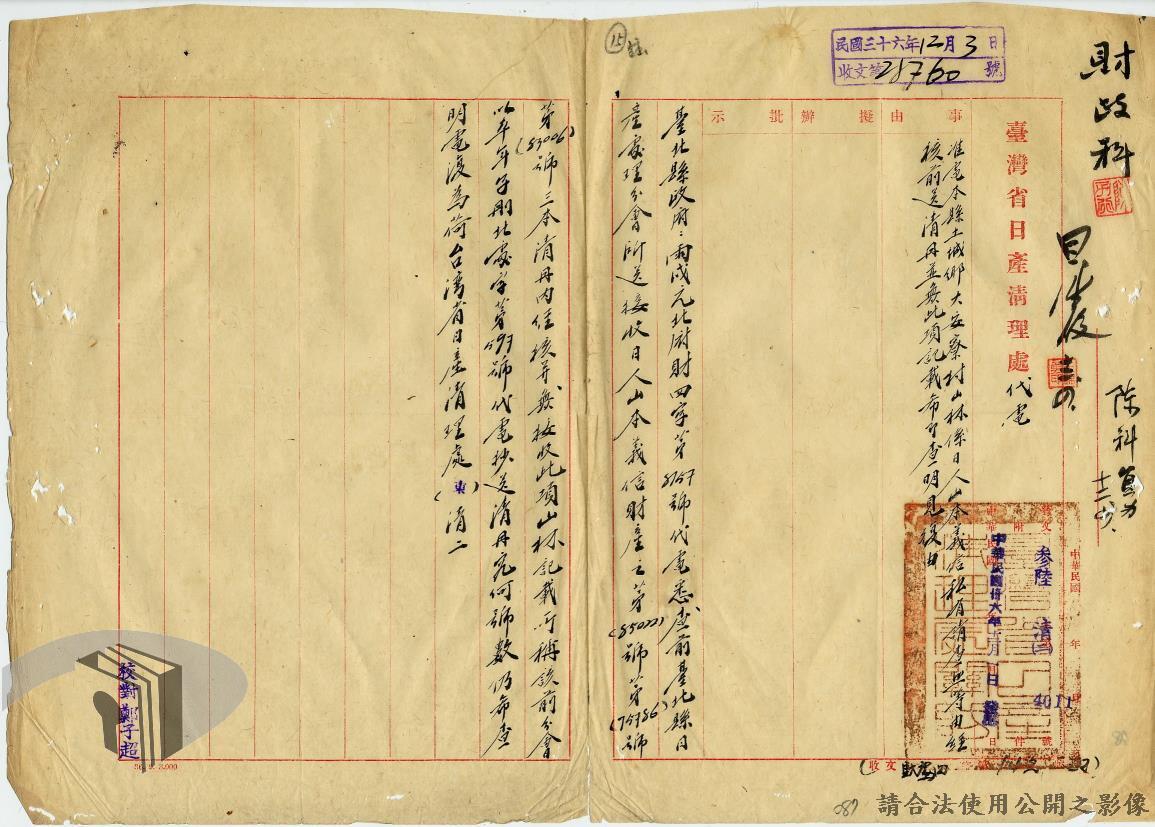 財政科
陳科員
十二、
民國三十六年12月3日
收文第28760號
臺灣省日產清理處代電
事由擬辦批示
准電本縣土城鄉大安寮村山林係日人山本義信私有
核前送清冊並無此項記載希即查明見復由
中華民國 年
參陸
清(二)
4011
號
中華民國卅六年 月 日
收文
臺北縣政府：兩戌元北府財四字第 號代電悉查前臺北縣日
產處理分會所送接收日人山本義信財產之第 號第 號
第 號三本清冊內經核并無接收此項山林記載所稱該前分會
以本年子刪北處字第 號代電抄送清冊究何號數仍希查
明電復為荷台灣省日產清理處(東)清二
校對鄭子超
15
請合法使用公開之影像